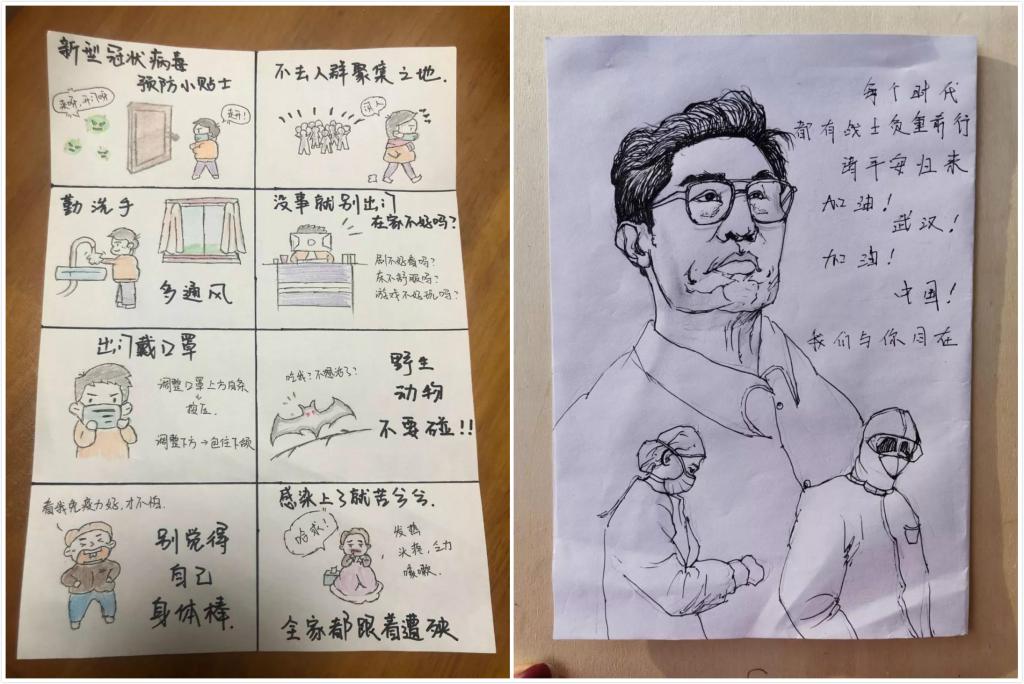 新型冠状病毒
预防小贴士
来呀,开门呀
走开!
不去人群聚集之地.
没人
勤洗手
多通风
没事就别出门
在家不好吗?
剧不好看吗?
床不舒服吗?
游戏不好玩吗?
出门戴口罩
调整口罩上方皮条
按压.
调整下方→包住下颌
吃我?不想活了?
野生
动物
不要碰!!
看我免疫力好,才不怕.
别觉得
自己
身体棒.
感染上了就苦兮兮.
哈求!
发热
头疼,乏力
咳嗽.
全家都跟着遭殃
每个时代
都有战士负重前行
请平安归来
加油!
武汉!
加油!
中国!
我们与你同在